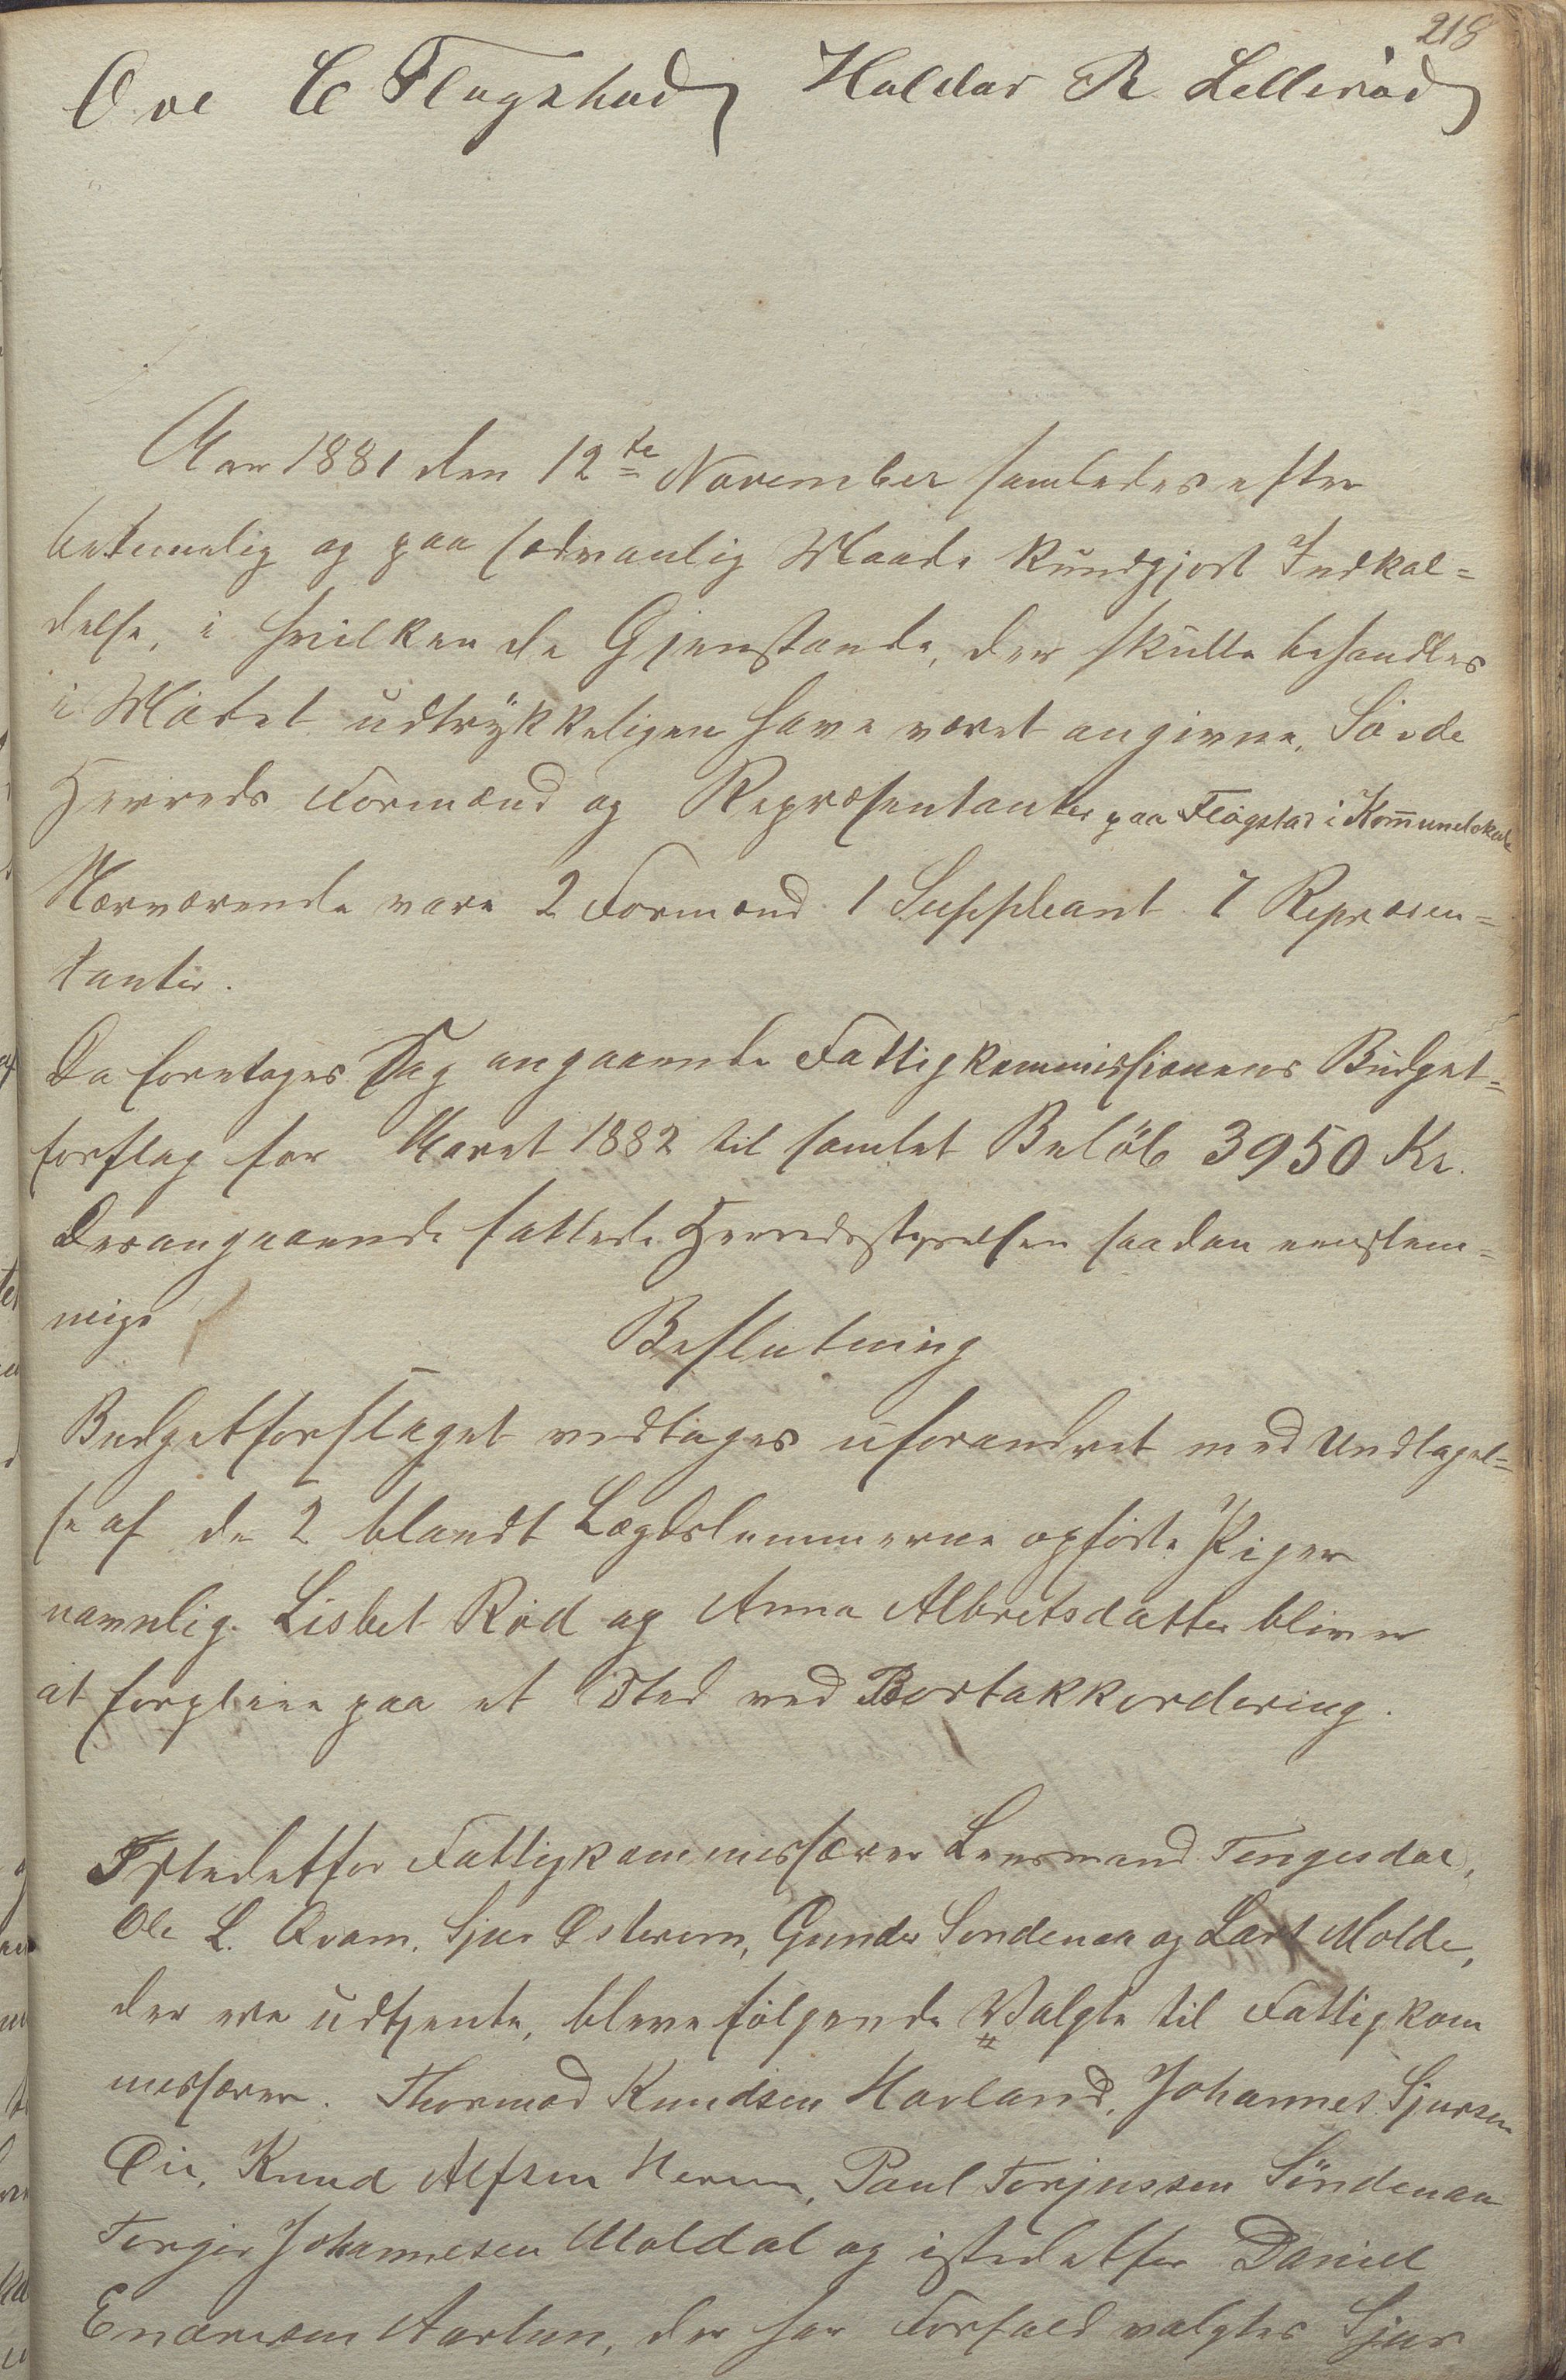 218
Ove C Flagstad Haldor R Lelleröd
Aar 1881 den 12te November samledes efter
betimelig og paa sædvanlig Maade kundgjort Indkal=
delse, i hvilken de Gjenstande, der skulle behandles
i Mødet udtrykkeligen have været angivne, Søvde
Herreds Formænd og Repræsentanter paa Flagstad i Kommunelokale
Nærværende vare 2 Formænd 1 Suppleant 7 Repræsen=
tanter.
Da foretoges Sag angaaende Fattigkommissionens Budget=
forslag for Aaret 1882 til samlet Beløb 3950 Kr.
Desangaaende fattede Herredsstyrelsen saadan eenstem=
mige
Beslutning
Budgetforslaget vedtages uforandret med Undtagel=
se af de 2 blandt Lægdslemmerne opførte Piger
navnlig Lisbet Rød og Anna Albretsdatter bliver
at forpleie paa et Sted ved Bortakkordering.
Istedetfor Fattigkommissærer Lensmand Tengesdal,
Ole L. Qvam, Sjur Østerem, Gunder Søndenaa og Lars Molde,
der ere udtjente, bleve følgende Valgte til Fattigkom
missærer. Thormod Knudsen Havland, Johannes Sjursen
Øie, Knud Alfsen Herem, Paul Torjussen Søndenaa
Torger Johannesen Moldal og istedetfor Daniel
Enderesen Aartun, der har Forfald valgtes Sjur